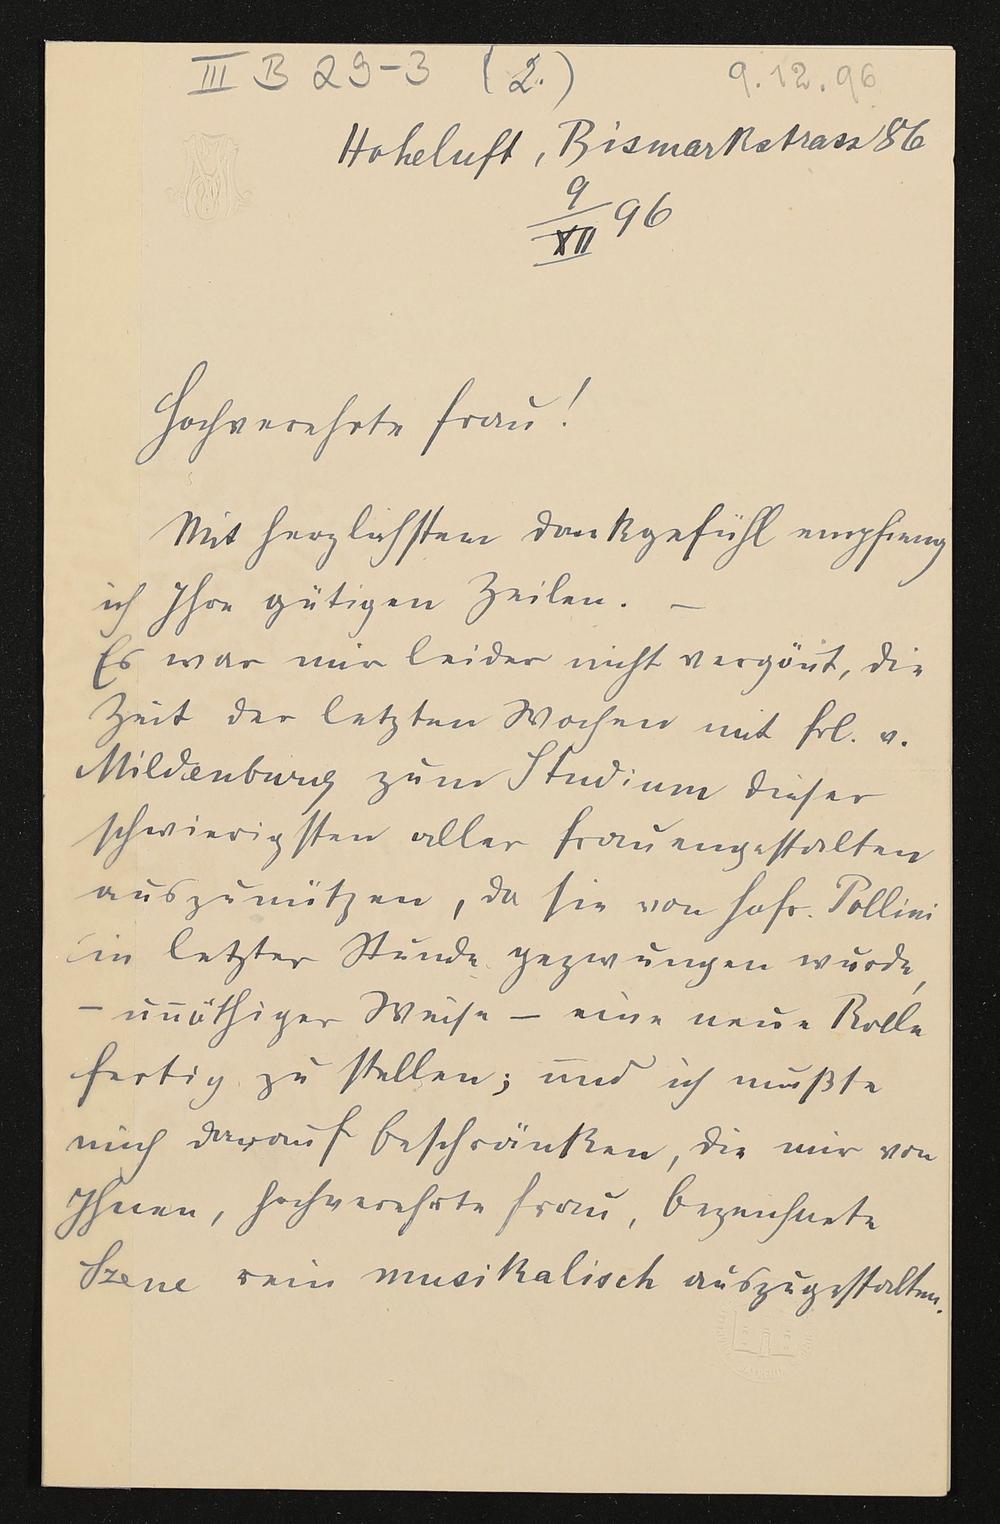 III B 29-3 (2.)
9.12.96
Hoheluft, Bismarkstrasse 86
9/XII 96
Hochverehrte Frau!
Mit herzlichstem Dankgefühl empfieng
ich Ihre gütigen Zeilen. –
Es war mir leider nicht vergön̅t, die
Zeit der letzten Wochen mit Frl. v.
Mildenburg zum Studium dieser
schwierigsten aller Frauengestalten
auszunützen, da sie von Hofr. Pollini
in letzter Stunde gezwungen wurde,
– un̅öthiger Weise – eine neue Rolle
fertig zu stellen; und ich mußte
mich darauf beschränken, die mir von
Ihnen, hochverehrte Frau, bezeichnete
Szene rein musikalisch auszugestalten.